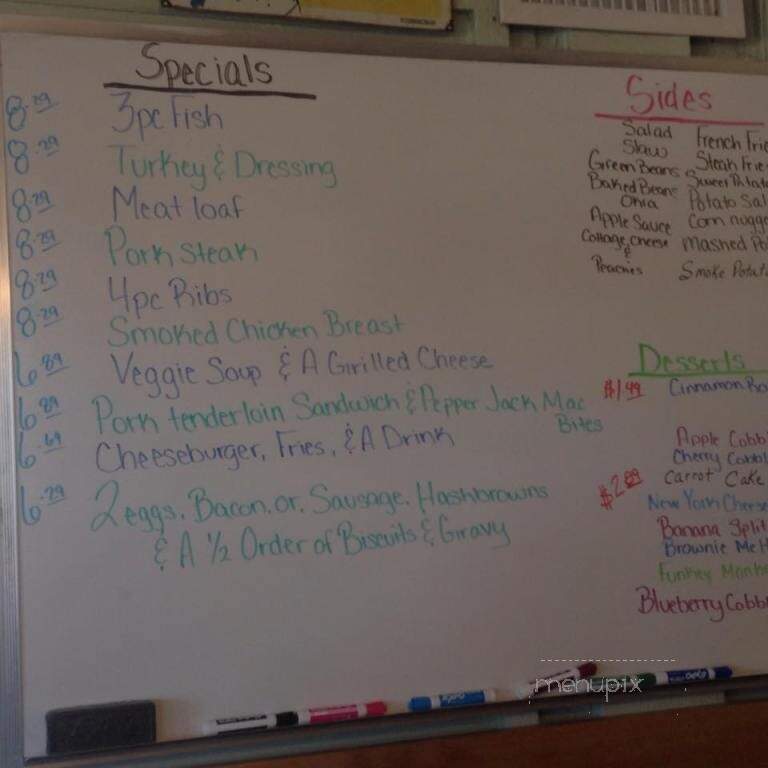 Specials
8.29 3pc Fish
8.29 Turkey & Dressing
8.29 Meat loaf
8.29 Pork Steak
8.29 4pc Ribs
8.29 Smoked Chicken Breast
6.89 Veggie Soup & A Grilled Cheese
6.89 Pork tenderloin Sandwich & Pepper Jack Mac
Bites
6.69 Cheeseburger, Fries, & A Drink
6.29 2 eggs, Bacon, or, Sausage, Hashbrowns
& A 1/2 Order of Biscuits & Gravy
Sides
Salad French Frie
Slaw Steak Frie
Green Beans Sweet Potato
Baked Beans Potato Sal
Okra Corn nugge
Apple Sauce Mashed Po
Cottage Cheese Smoke Potat
&
Peaches
Desserts
$1.99 Cinnamon Ro
Apple Cobb
Cherry Cobbl
$2.89 Carrot Cake
New York Cheese
Banana Split
Brownie Me H
Funkey Monke
Blueberry Cobb
menupix